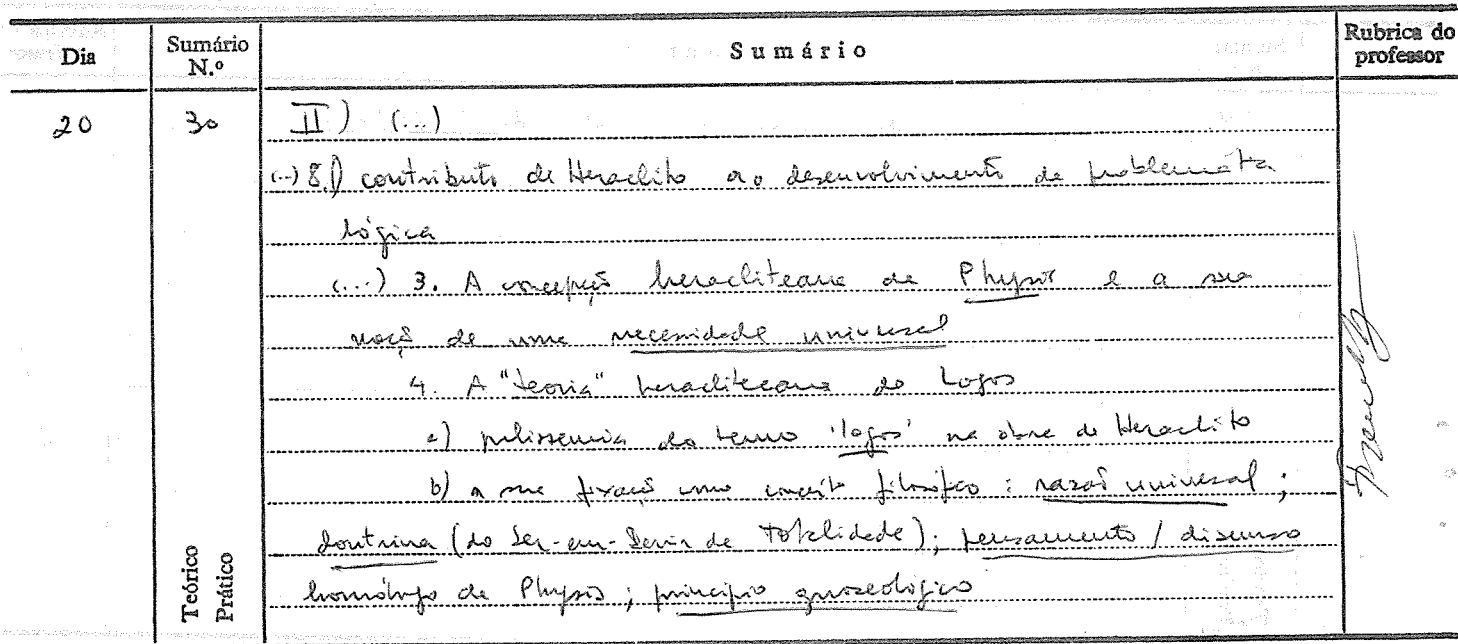 Dia Sumário N.º Sumário Rubrica do professor
20 30 II) (...)
(...) 8.) contributo de Heraclito ao desenvolvimento da problemática
lógica
(...) 3. A concepção heracliteana de Physis e a sua
noção de uma necessidade universal
4. A "teoria" heracliteana do Logos
a) polissemia do termo 'logos' na obra de Heraclito
b) a sua fixação como conceito filosófico : razão universal ;
doutrina (do Ser-em-Devir da Totalidade); pensamento / discurso
homólogo da Physis ; princípio gnoseológico
Teórico
Prático